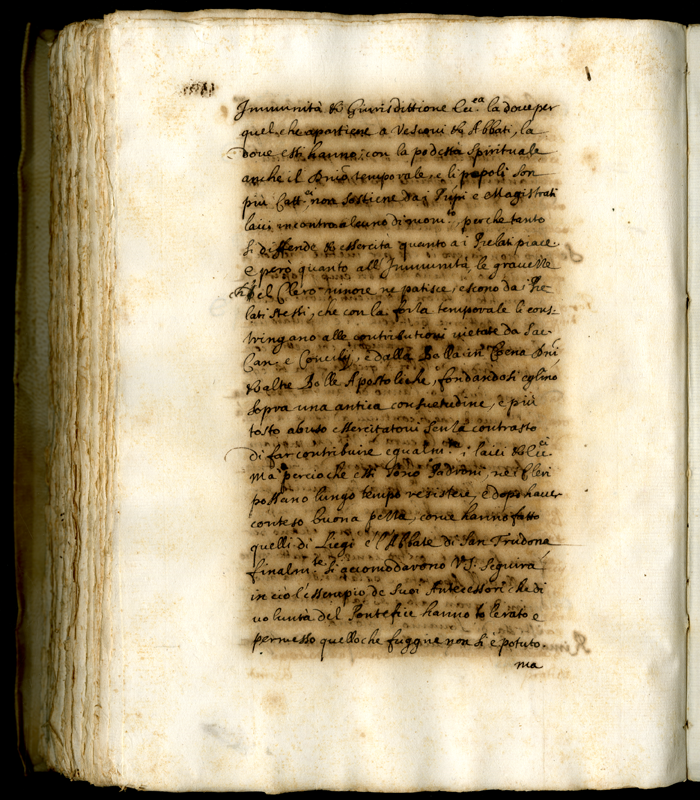 Immunità & Giurisdittione Ec.ca la doue per
quel che apartiene a Vescoui & Abbati, la
doue essi hanno con la podestà spirituale
anche il Dñio temporale, e li popoli son
più Catt.ci non sostiene da i Prñpi e Magistrati
laici incontro alcuno di mom.to, perche tanto
si diffende & essercita quanto a i Prelati piace.
e però quanto all'Immunità, le grauezze
ch'el Clero minore ne patisce, escono da Pre
lati stessi, che con la forza temporale li cons-
tringano alle contributioni uietate da Sac.
Can. e Concilij, e dalla Bolla in Coena Dñi
& altre Bolle Apostoliche, fondandosi eglino
sopra una antica consuetudine, e più
tosto abuso essercitatoui senza contrasto
di far contribuire equalm.te i laici & Ec.ci
ma percioche essi sono Padroni ne i Cleri
possano lungo tempo resistere, e dopo hauer
conteso buona pezza, come hanno fatto
quelli di Liegi e l'Abbate di San Trudone
finalm.te si accomodarono V.S. seguirà
in ciò l'essempio de suoi Antecessori che di
uoluntà del Pontefice hanno tolerato e
permesso quello che fuggire non si è potuto.
ma